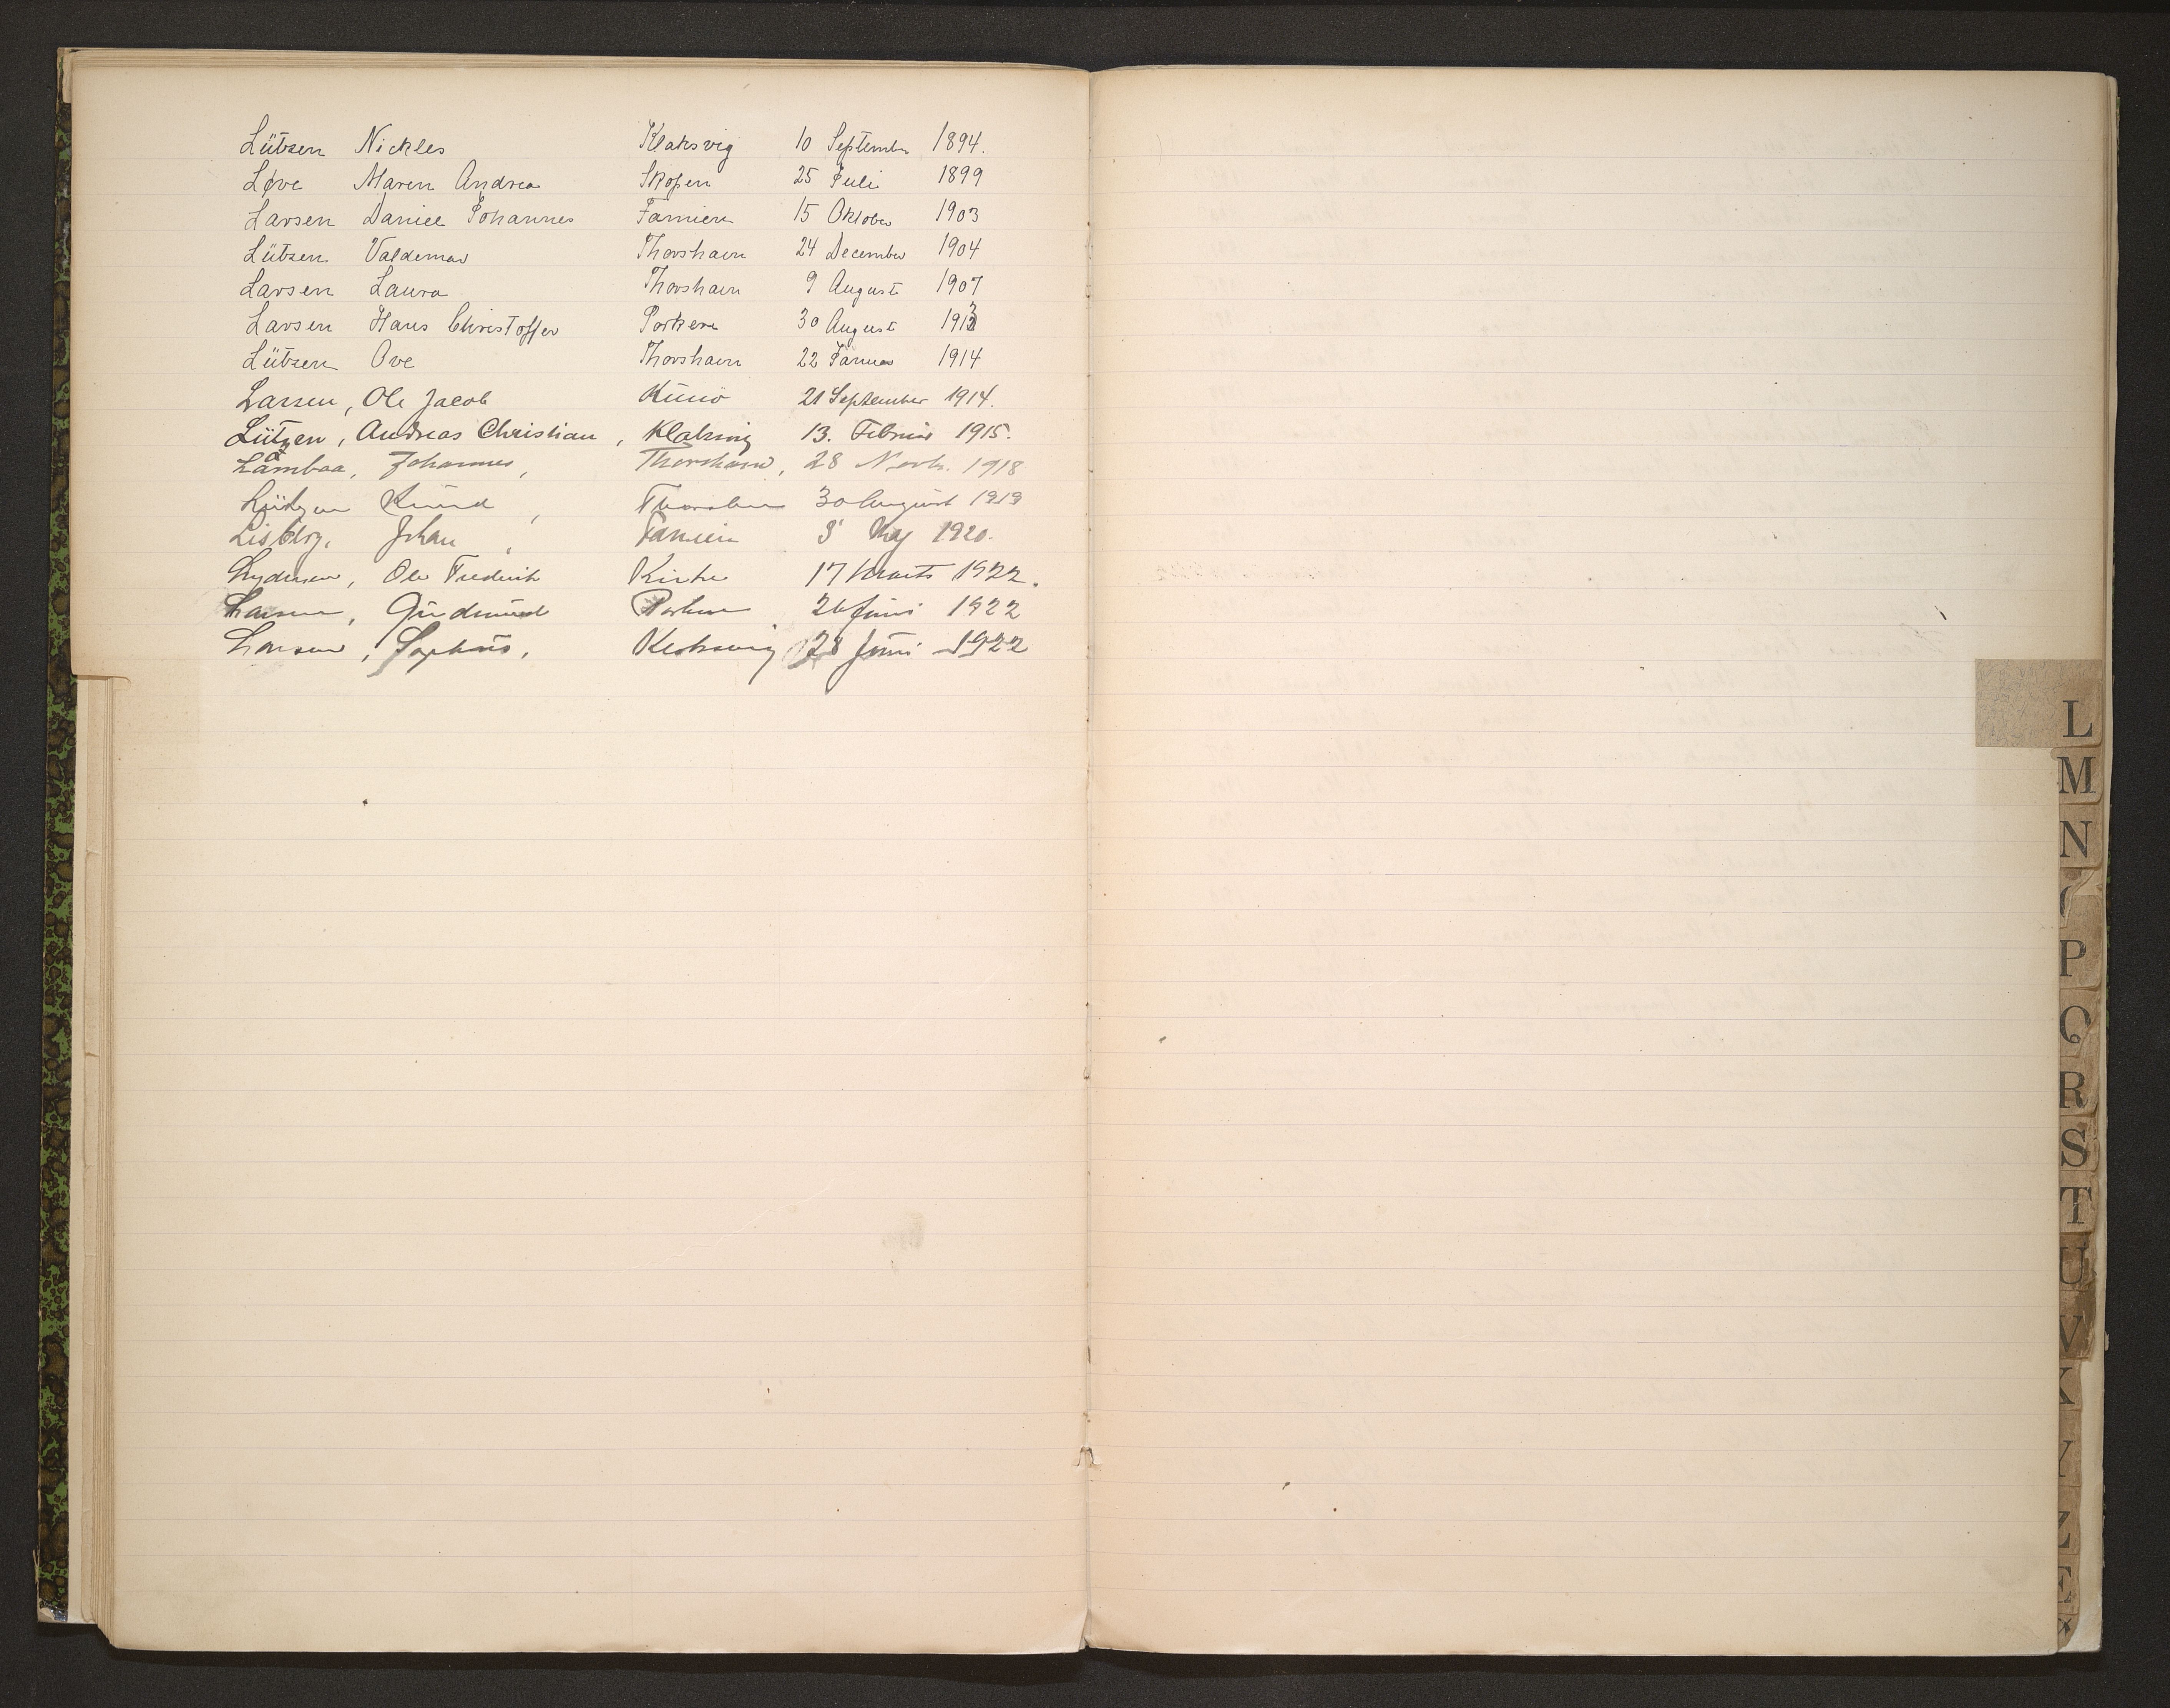 Lützen Nickles Klaksvig 10 September 1894.
Løve Maren Andrea Skopen 25 Juli 1899
Larsen Daniel Johannes Famien 15 Oktober 1903
Lützen Valdemar Thorshavn 24 December 1904
Larsen Laura Thorshavn 9 August 1907
Larsen Hans Christoffer Porkere 30 August 1913
Lützen Ove Thorshavn 22 Januar 1914
Larsen, Ole Jacob Kunø 21 September 1914.
Lützen, Andreas Christian, Klaksvig 13. Februar 1915.
Lambaa, Johannes, Thorshavn, 28 Novbr. 1918
Lützen Knud, Thorshavn 30 August 1919
Lisberg, Johan, Famien 8' Maj 1920.
Lydersen, Ole Frederik Kirke 17 Marts 1922.
Larsen, Gudmund Porkere 26 Juni 1922
Larsen, Sophus, Klaksvig 28 Juni 1922
L
M
N
P
Q
R
S
T
U
V